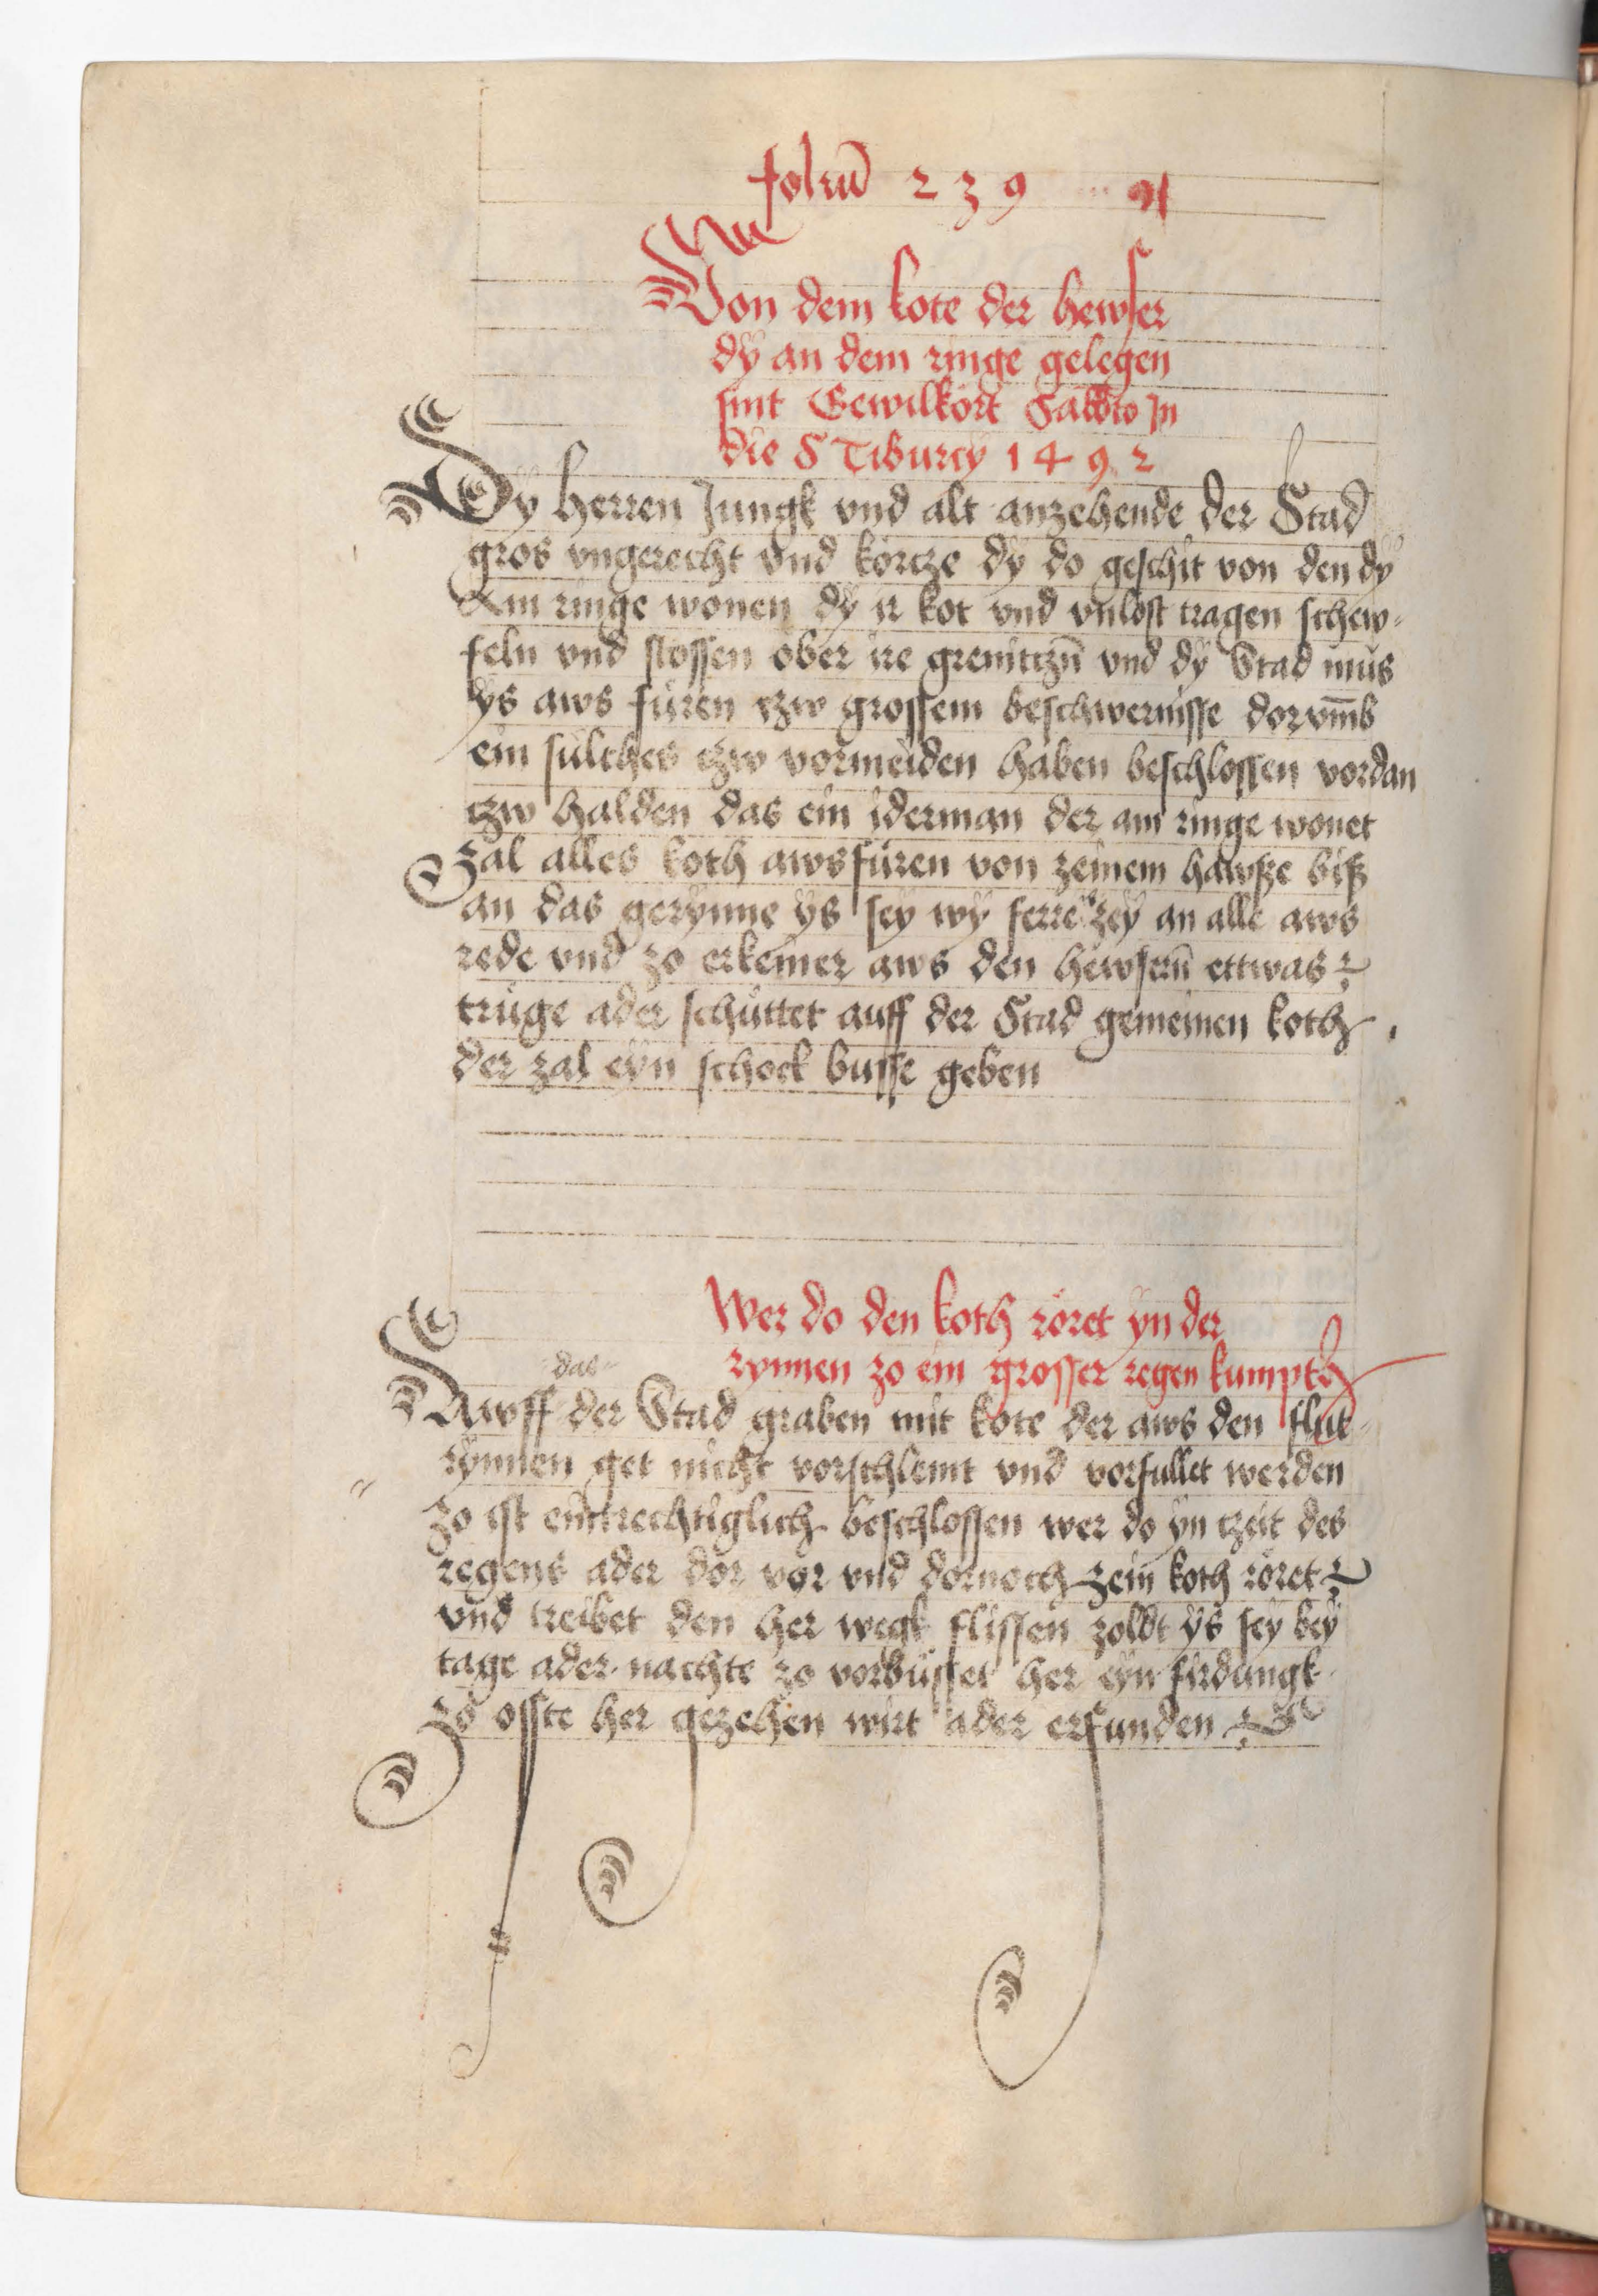 foliū 239
Von dem kote der hewser
dÿ an dem ringe gelegen
sint Gewilkört Sabbto In
die S Tiburcÿ 1492
Dy herren Jungk vnd alt anzehende der Stad
gros vngerecht vnd körcze dÿ do geschit von den dÿ
Am ringe wonen dÿ ir kot vnd vnlost tragen schew-
feln vnd stossen ober ire grenitczū vnd dÿ Stad mus
ÿs aws füren czw grossem beschwernisse dorvm̄b
ein sulches czw vormeiden haben beschlossen vordan
czw halden das ein iderman der am ringe wonet
Zal alles koth awsfüren von zeinem hawsze bisz
an das gerÿnne ÿs seÿ wÿ ferre zeÿ an alle aws
rede vnd zo erkeiner aws den hewserū ettwas
trüge ader schüttet auff der Stad gemeinen koth
der zal eÿn schock busse geben
Wer do den koth röret ÿn der
rynnen zo ein grosser regen kumpth
das
Awff der Stad graben mit kote der aws den flut-
rÿnnen get nicht vorschlemt vnd vorfullet werden
Zo ist eintrechtiglich beschlossen wer do ÿn czeit des
regens ader dor vor vnd dornoch zein koth röret
vnd treibet den her wegk flissen zoldt ÿs seÿ beÿ
tage ader nachte zo vorbüsset her eÿn firdungk
zo offte her gezehen wirt ader erfunden